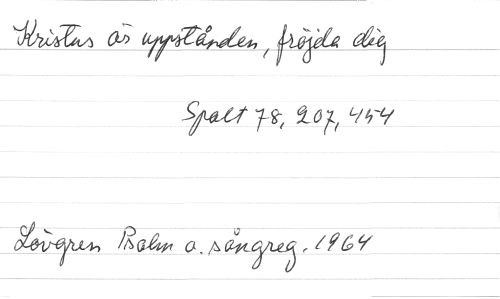 Kristus är uppstånden, fröjda dig
Spalt 78, 207, 454
Lövgren Psalm o. sångreg. 1964